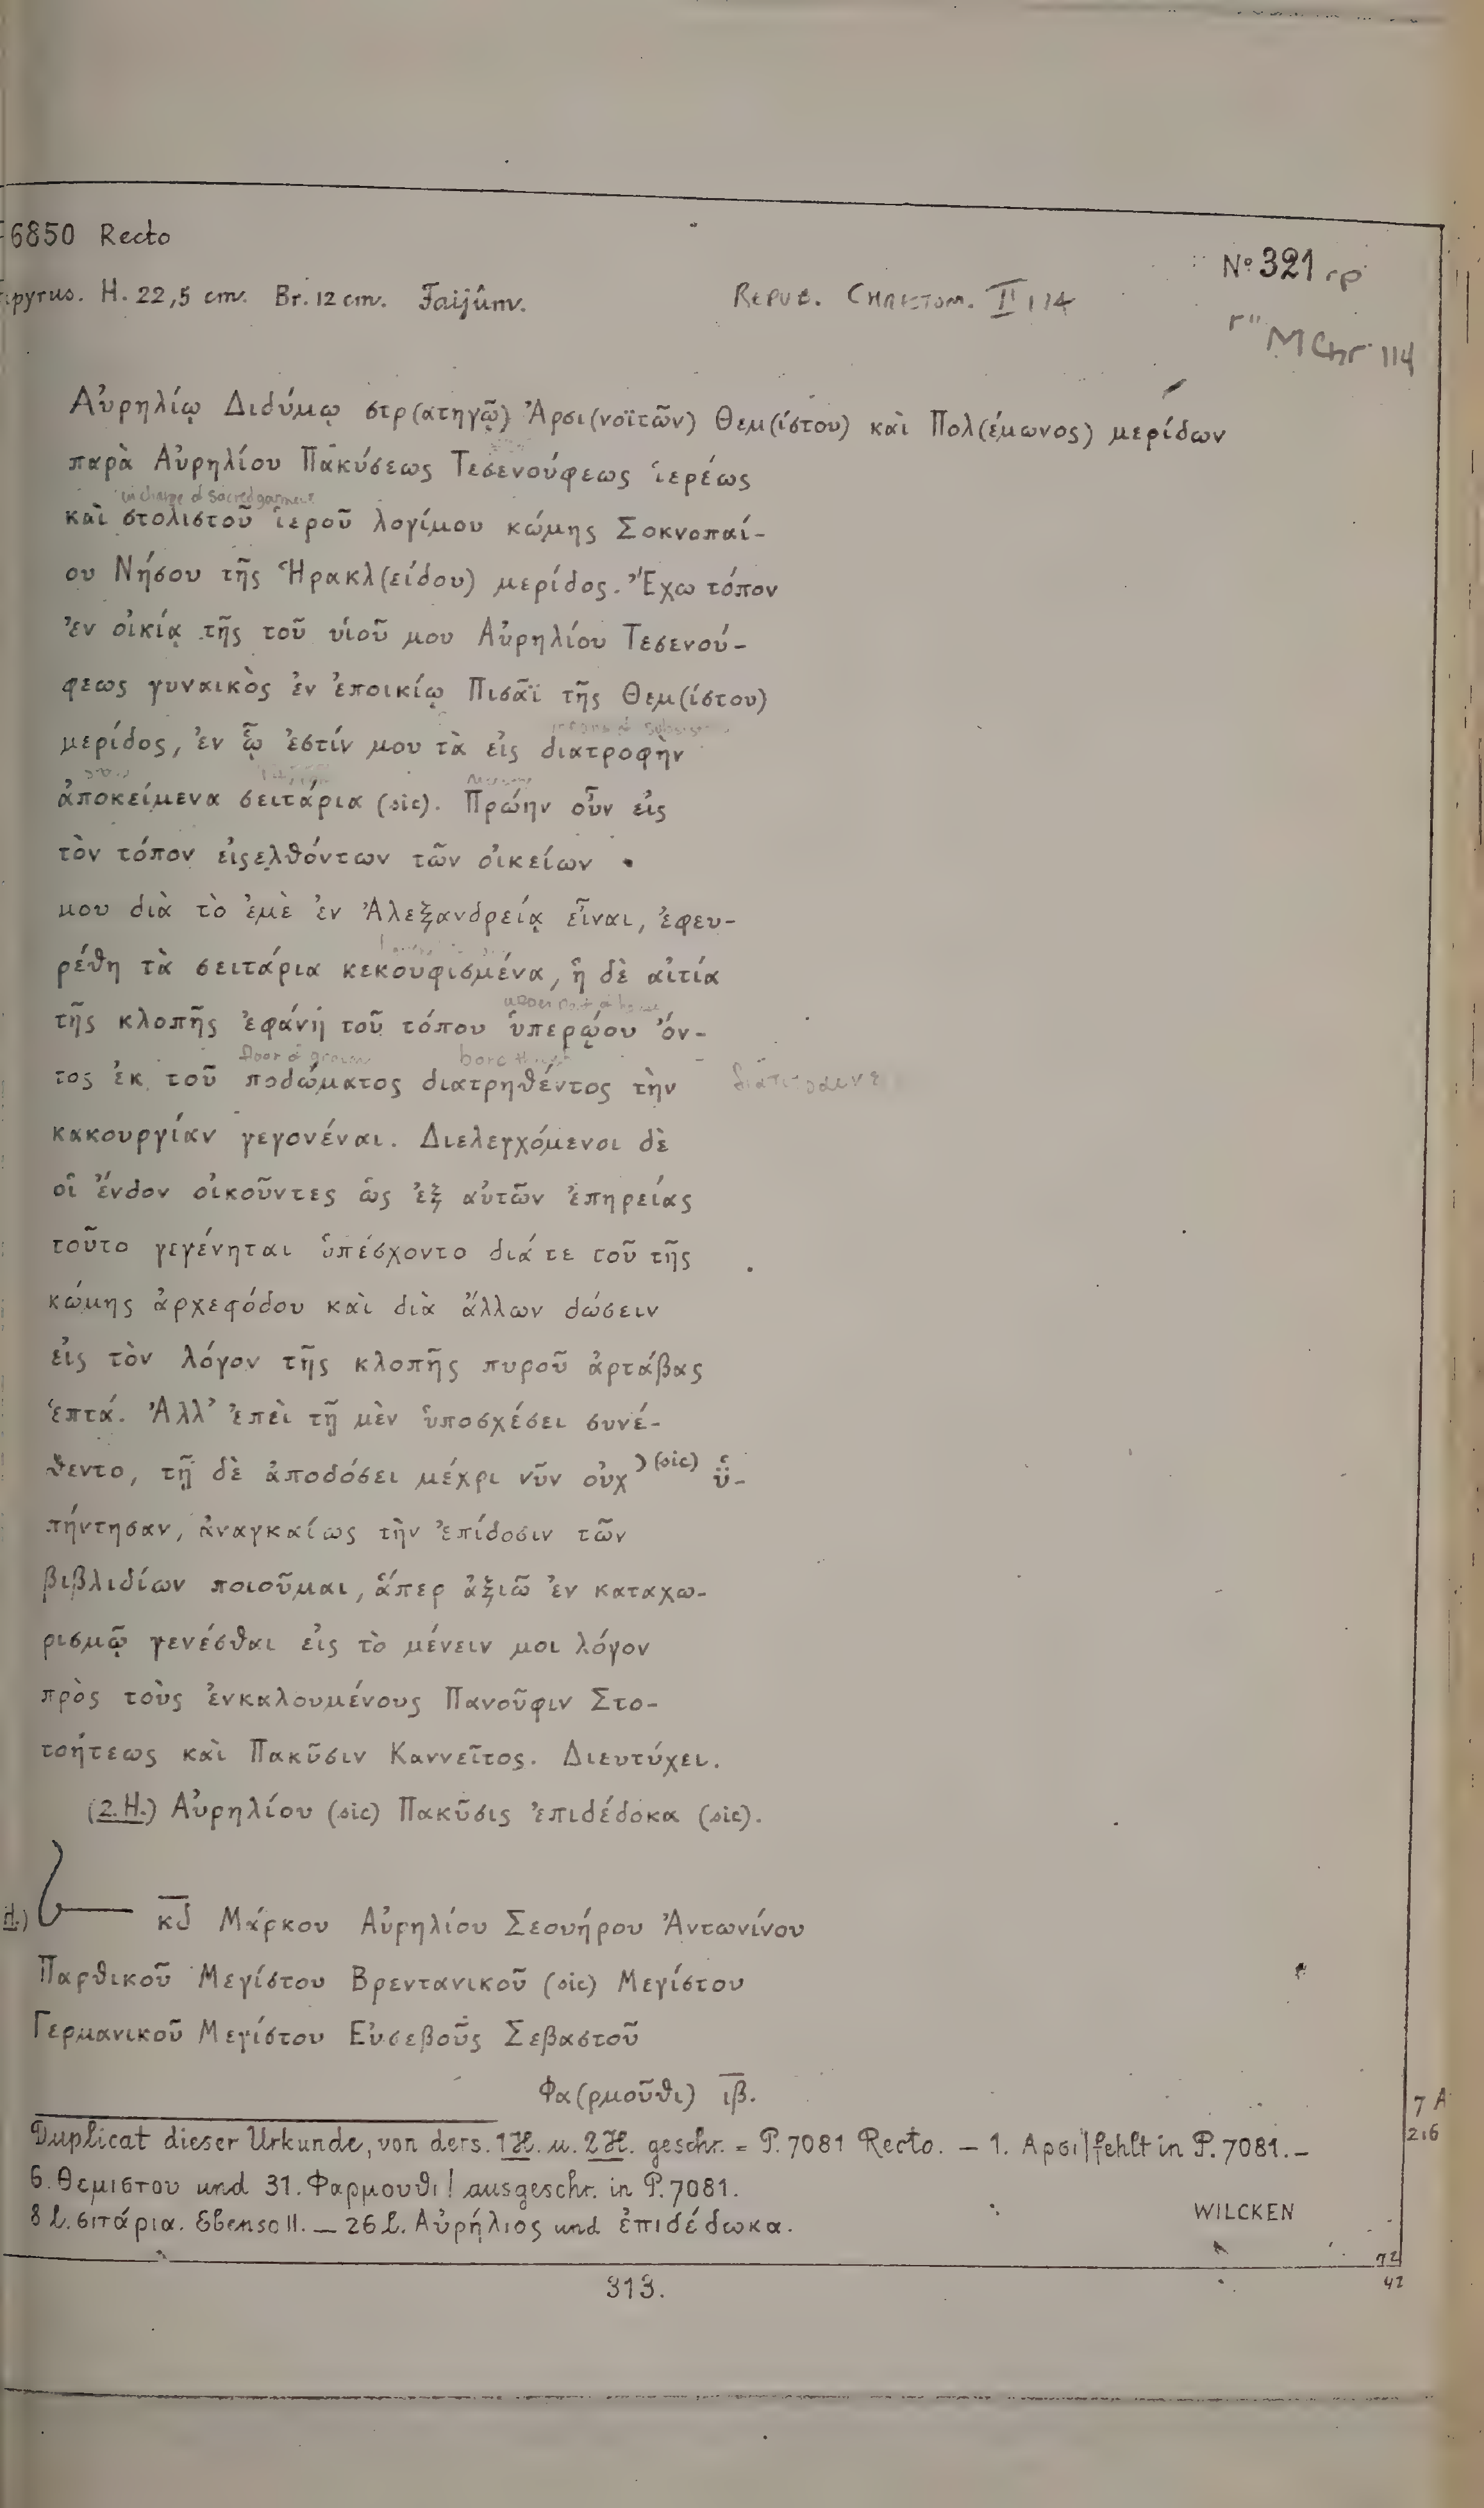 6850 Recto
Nº 321 rp
pyrus. H. 22,5 cm. Br. 12 cm. Faijûm.
Repub. Christom. II 114
MChr 114
Αὐρηλίῳ Διδύμῳ στρ(ατηγῷ) Ἀρσι(νοϊτῶν) Θεμ(ίστου) καὶ Πολ(έμωνος) μερίδων
παρὰ Αὐρηλίου Πακύσεως Τεσενούφεως ἱερέως
in charge of sacred garments
καὶ στολιστοῦ ἱεροῦ λογίμου κώμης Σοκνοπαί-
ου Νήσου τῆς Ἡρακλ(είδου) μερίδος. Ἔχω τόπον
ἐν οἰκίᾳ τῆς τοῦ υἱοῦ μου Αὐρηλίου Τεσενού-
φεως γυναικὸς ἐν ἐποικίῳ Πισᾶϊ τῆς Θεμ(ίστου)
means of subsistence
μερίδος, ἐν ᾧ ἐστίν μου τὰ εἰς διατροφὴν
ἀποκείμενα σειτάρια (sic). Πρώην οὖν εἰς
τὸν τόπον εἰςελθόντων τῶν οἰκείων
μου διὰ τὸ ἐμὲ ἐν Ἀλεξανδρείᾳ εἶναι, ἐφευ-
ρέθη τὰ σειτάρια κεκουφισμένα, ἡ δὲ αἰτία
upper part of house
τῆς κλοπῆς ἐφάνη τοῦ τόπου ὑπερῴου ὄν-
floor of ground bore through
τος ἐκ τοῦ ποδώματος διατρηθέντος τὴν
κακουργίαν γεγονέναι. Διελεγχόμενοι δὲ
οἱ ἔνδον οἰκοῦντες ὡς ἐξ αὐτῶν ἐπηρείας
τοῦτο γεγένηται ὑπέσχοντο διά τε τοῦ τῆς
κώμης ἀρχεφόδου καὶ διὰ ἄλλων δώσειν
εἰς τὸν λόγον τῆς κλοπῆς πυροῦ ἀρτάβας
ἑπτά. Ἀλλ' ἐπεὶ τῇ μὲν ὑποσχέσει συνέ-
θεντο, τῇ δὲ ἀποδόσει μέχρι νῦν οὐχ᾽ (sic) ὑ̈-
πήντησαν, ἀναγκαίως τὴν ἐπίδοσιν τῶν
βιβλιδίων ποιοῦμαι, ἅπερ ἀξιῶ ἐν καταχω-
ρισμῷ γενέσθαι εἰς τὸ μένειν μοι λόγον
πρὸς τοὺς ἐνκαλουμένους Πανοῦφιν Στο-
τοήτεως καὶ Πακῦσιν Καννεῖτος. Διευτύχει.
(2.H.) Αὐρηλίου (sic) Πακῦσις ἐπιδέδοκα (sic).
H.) κδ Μάρκου Αὐρηλίου Σεουήρου Ἀντωνίνου
Παρθικοῦ Μεγίστου Βρεντανικοῦ (sic) Μεγίστου
Γερμανικοῦ Μεγίστου Εὐσεβοῦς Σεβαστοῦ
Φα(ρμοῦθι) ιβ.
Duplicat dieser Urkunde, von ders. 1 H. u. 2 H. geschr. = P. 7081 Recto. – 1. Αρσι| fehlt in P. 7081. –
6. Θεμιστου und 31. Φαρμουθι! ausgeschr. in P. 7081.
8 l. σιτάρια. Ebenso 11. – 26 l. Αὐρήλιος und ἐπιδέδωκα.
WILCKEN
7 A
216
72
42
313.